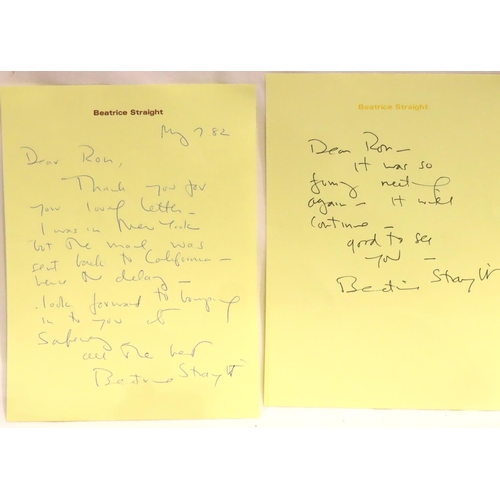 Beatrice Straight
May 7 82
Dear Ron,
Thank you for
your lovely letter -
I was in New York
but the mail was
sent back to California -
hence the delay -
look forward to bumping
in to you at
all the best
Beatrice Straight
Beatrice Straight
Dear Ron -
It was so
funny meeting
again - it will
continue -
good to see
you -
Beatrice Straight